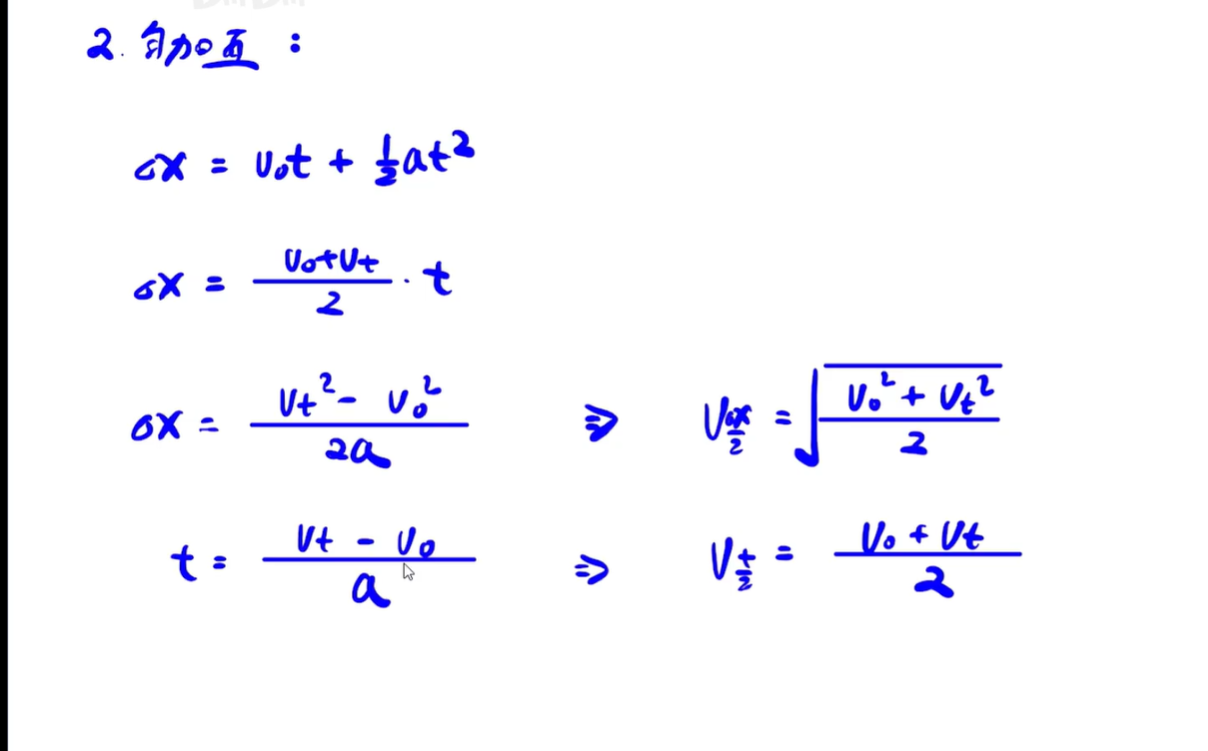 2. 匀加直:
Δx = v₀t + ½at²
Δx = (v₀+vt)/2 · t
Δx = (vt² - v₀²)/2a ⇒ V_(Δx/2) = √((v₀² + vt²)/2)
t = (vt - v₀)/a ⇒ V_(t/2) = (v₀ + vt)/2